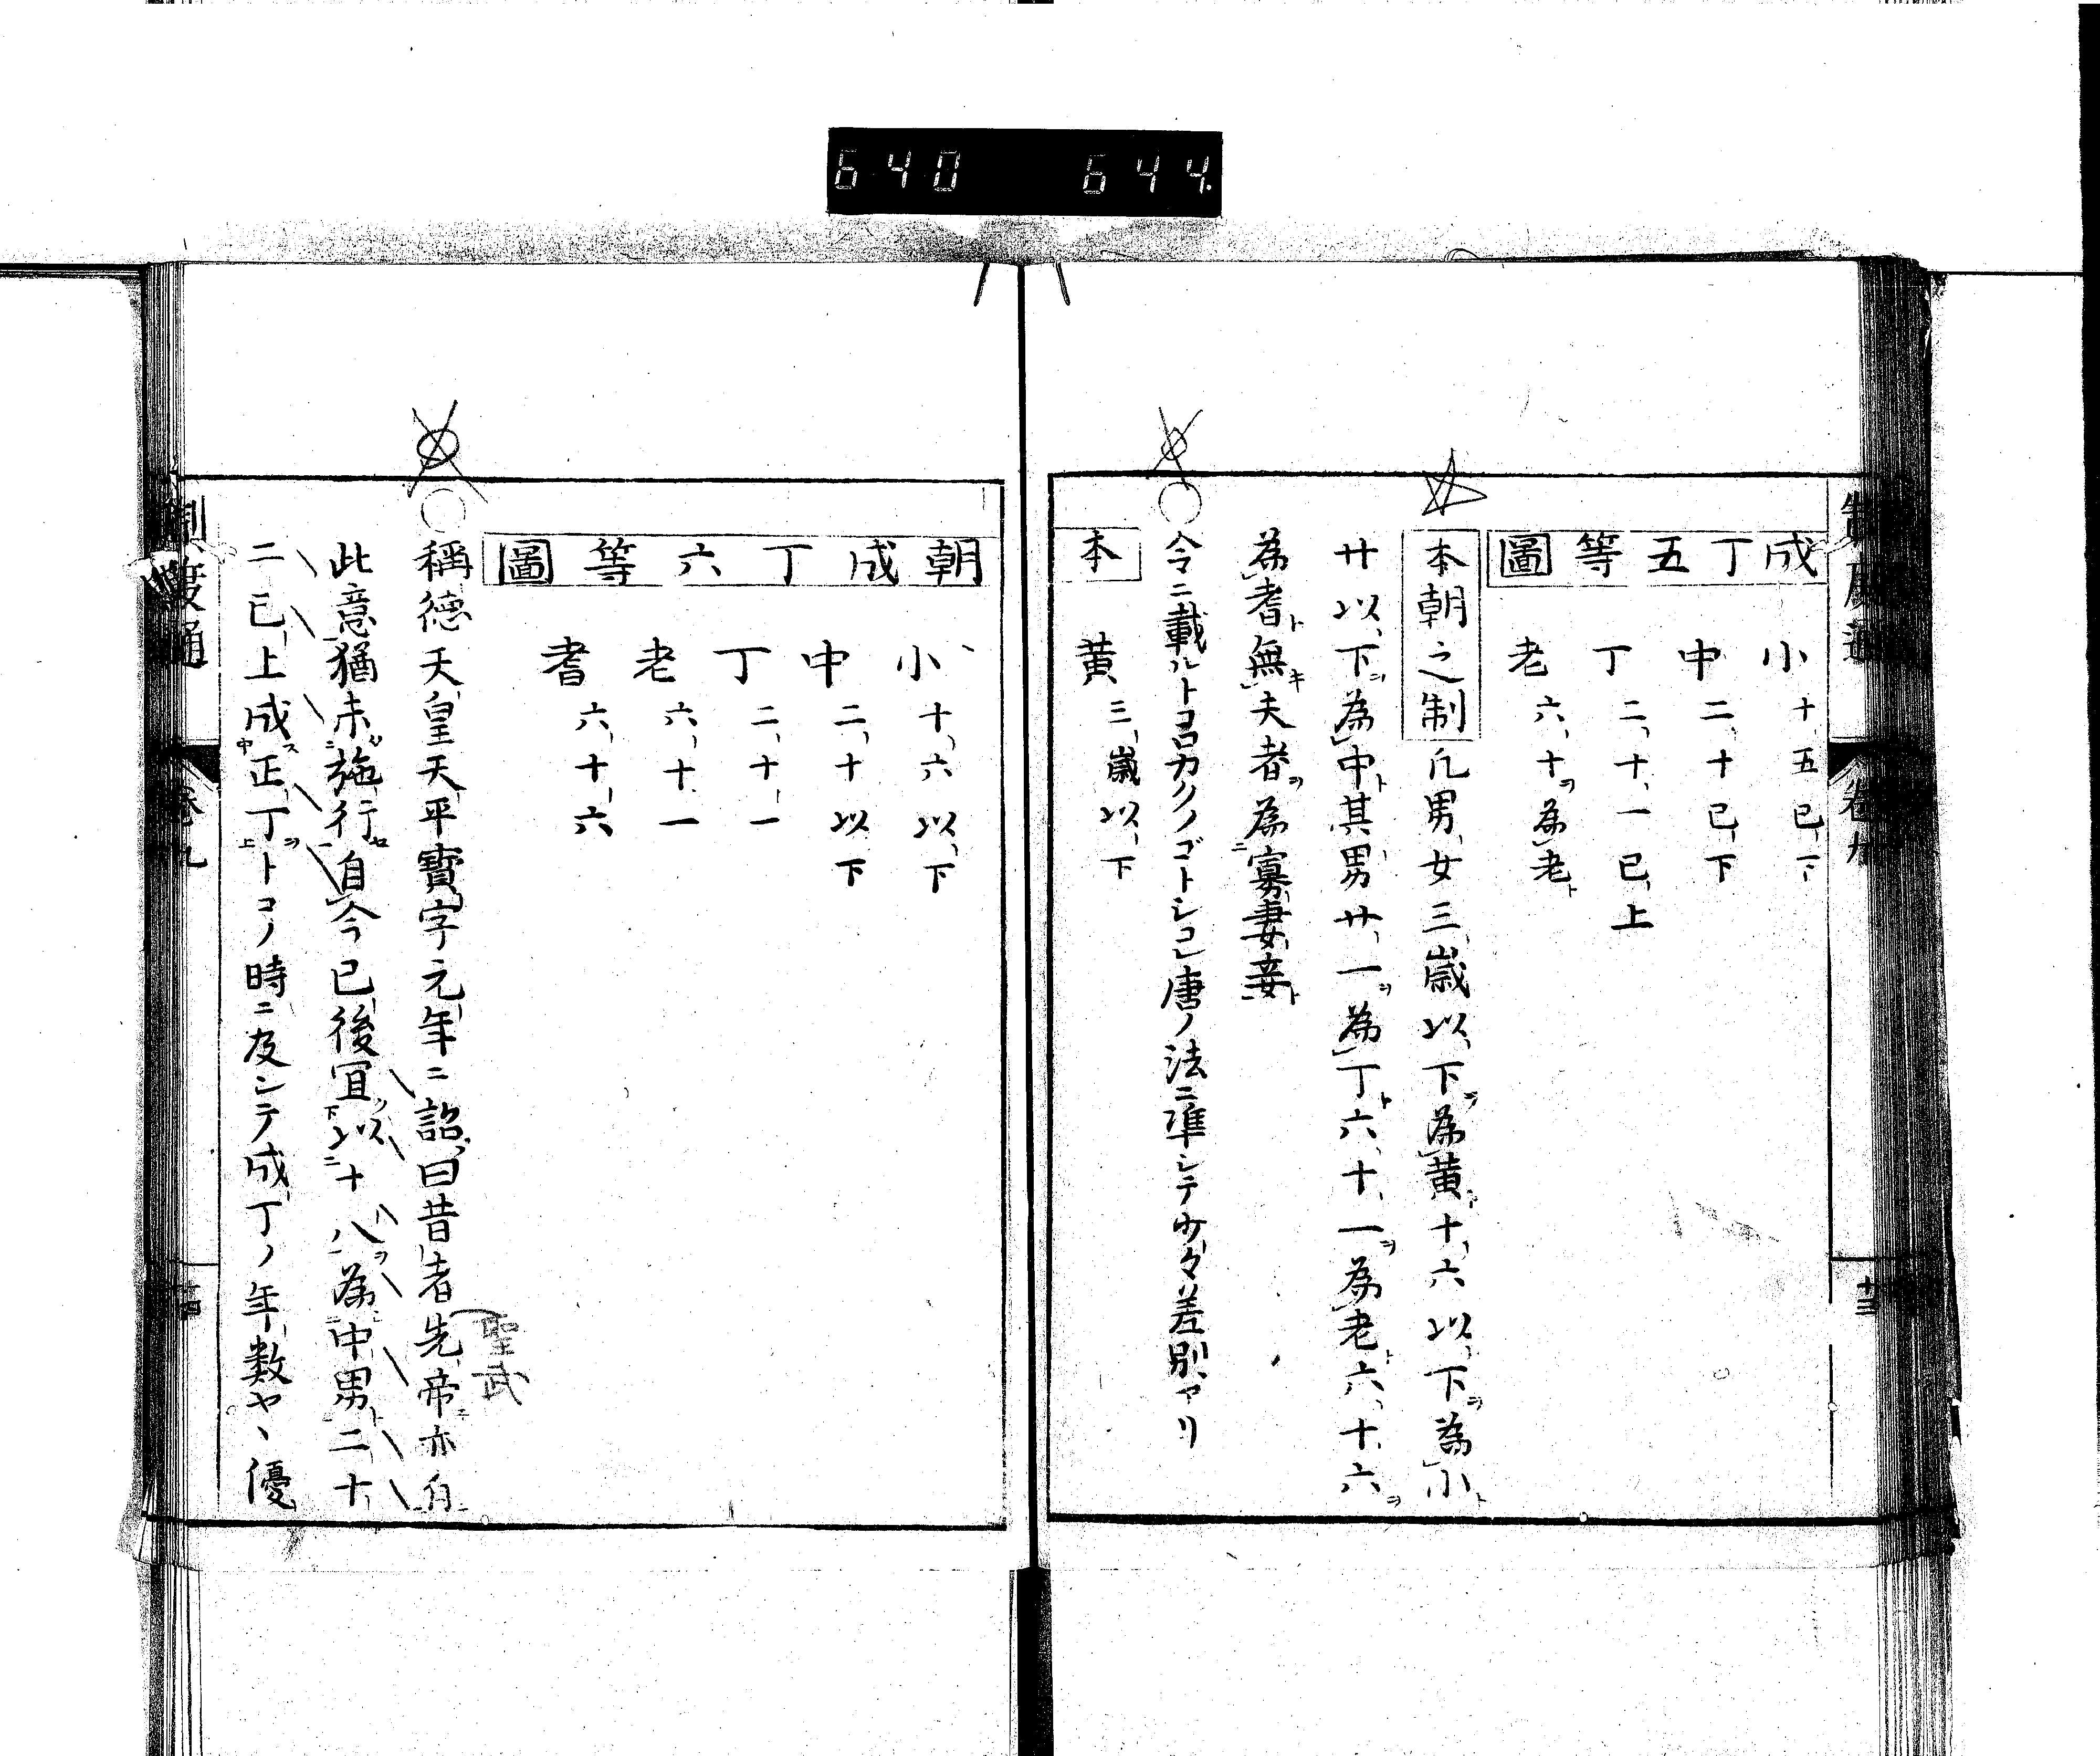 640 644
制度通 卷九 十三
成丁五等圖
小 十五已下
中 二十已下
丁 二十一已上
老 六十ヲ為老ト
本朝之制 凡男女三歳以下ヲ為黄ト十六以下ヲ為小ト
廿以下ヲ為中ト其男廿一ヲ為丁ト六十一ヲ為老ト六十六ヲ
為耆ト無キ夫者ヲ為寡妻妾ト
○令ニ載ルトコロカクノゴトシコレ唐ノ法ニ準シテ少々差別アリ
本
黄 三歳以下
朝成丁六等圖
小 十六以下
中 二十以下
丁 二十一
老 六十一
耆 六十六
○稱德天皇天平寶字元年ニ詔曰昔者先帝亦有
聖武
此意猶未施行自今已後宜以十八為中男二十
二已上成正丁トコノ時ニ及シテ成丁ノ年數ヤヽ優
制度通 卷九 十四